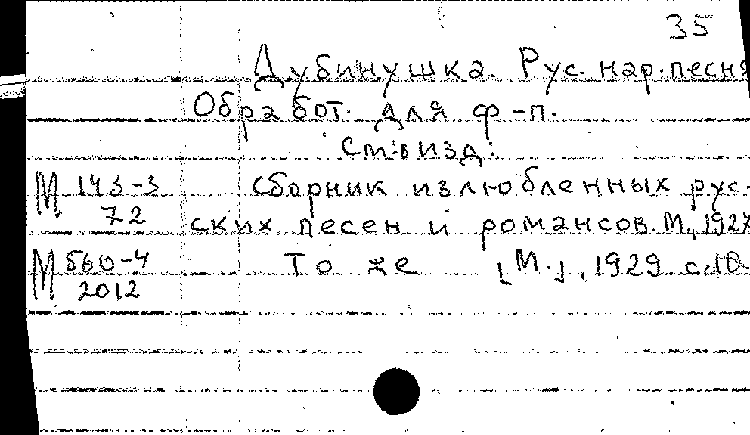 35
Дубинушка. Рус. нар. песня
Обработ. для ф-п.
См. в изд.:
М 143-3 Сборник излюбленных рус-
72 ских песен и романсов. М., 1927
М 560-4 То же [М.], 1929 с. 10
2012